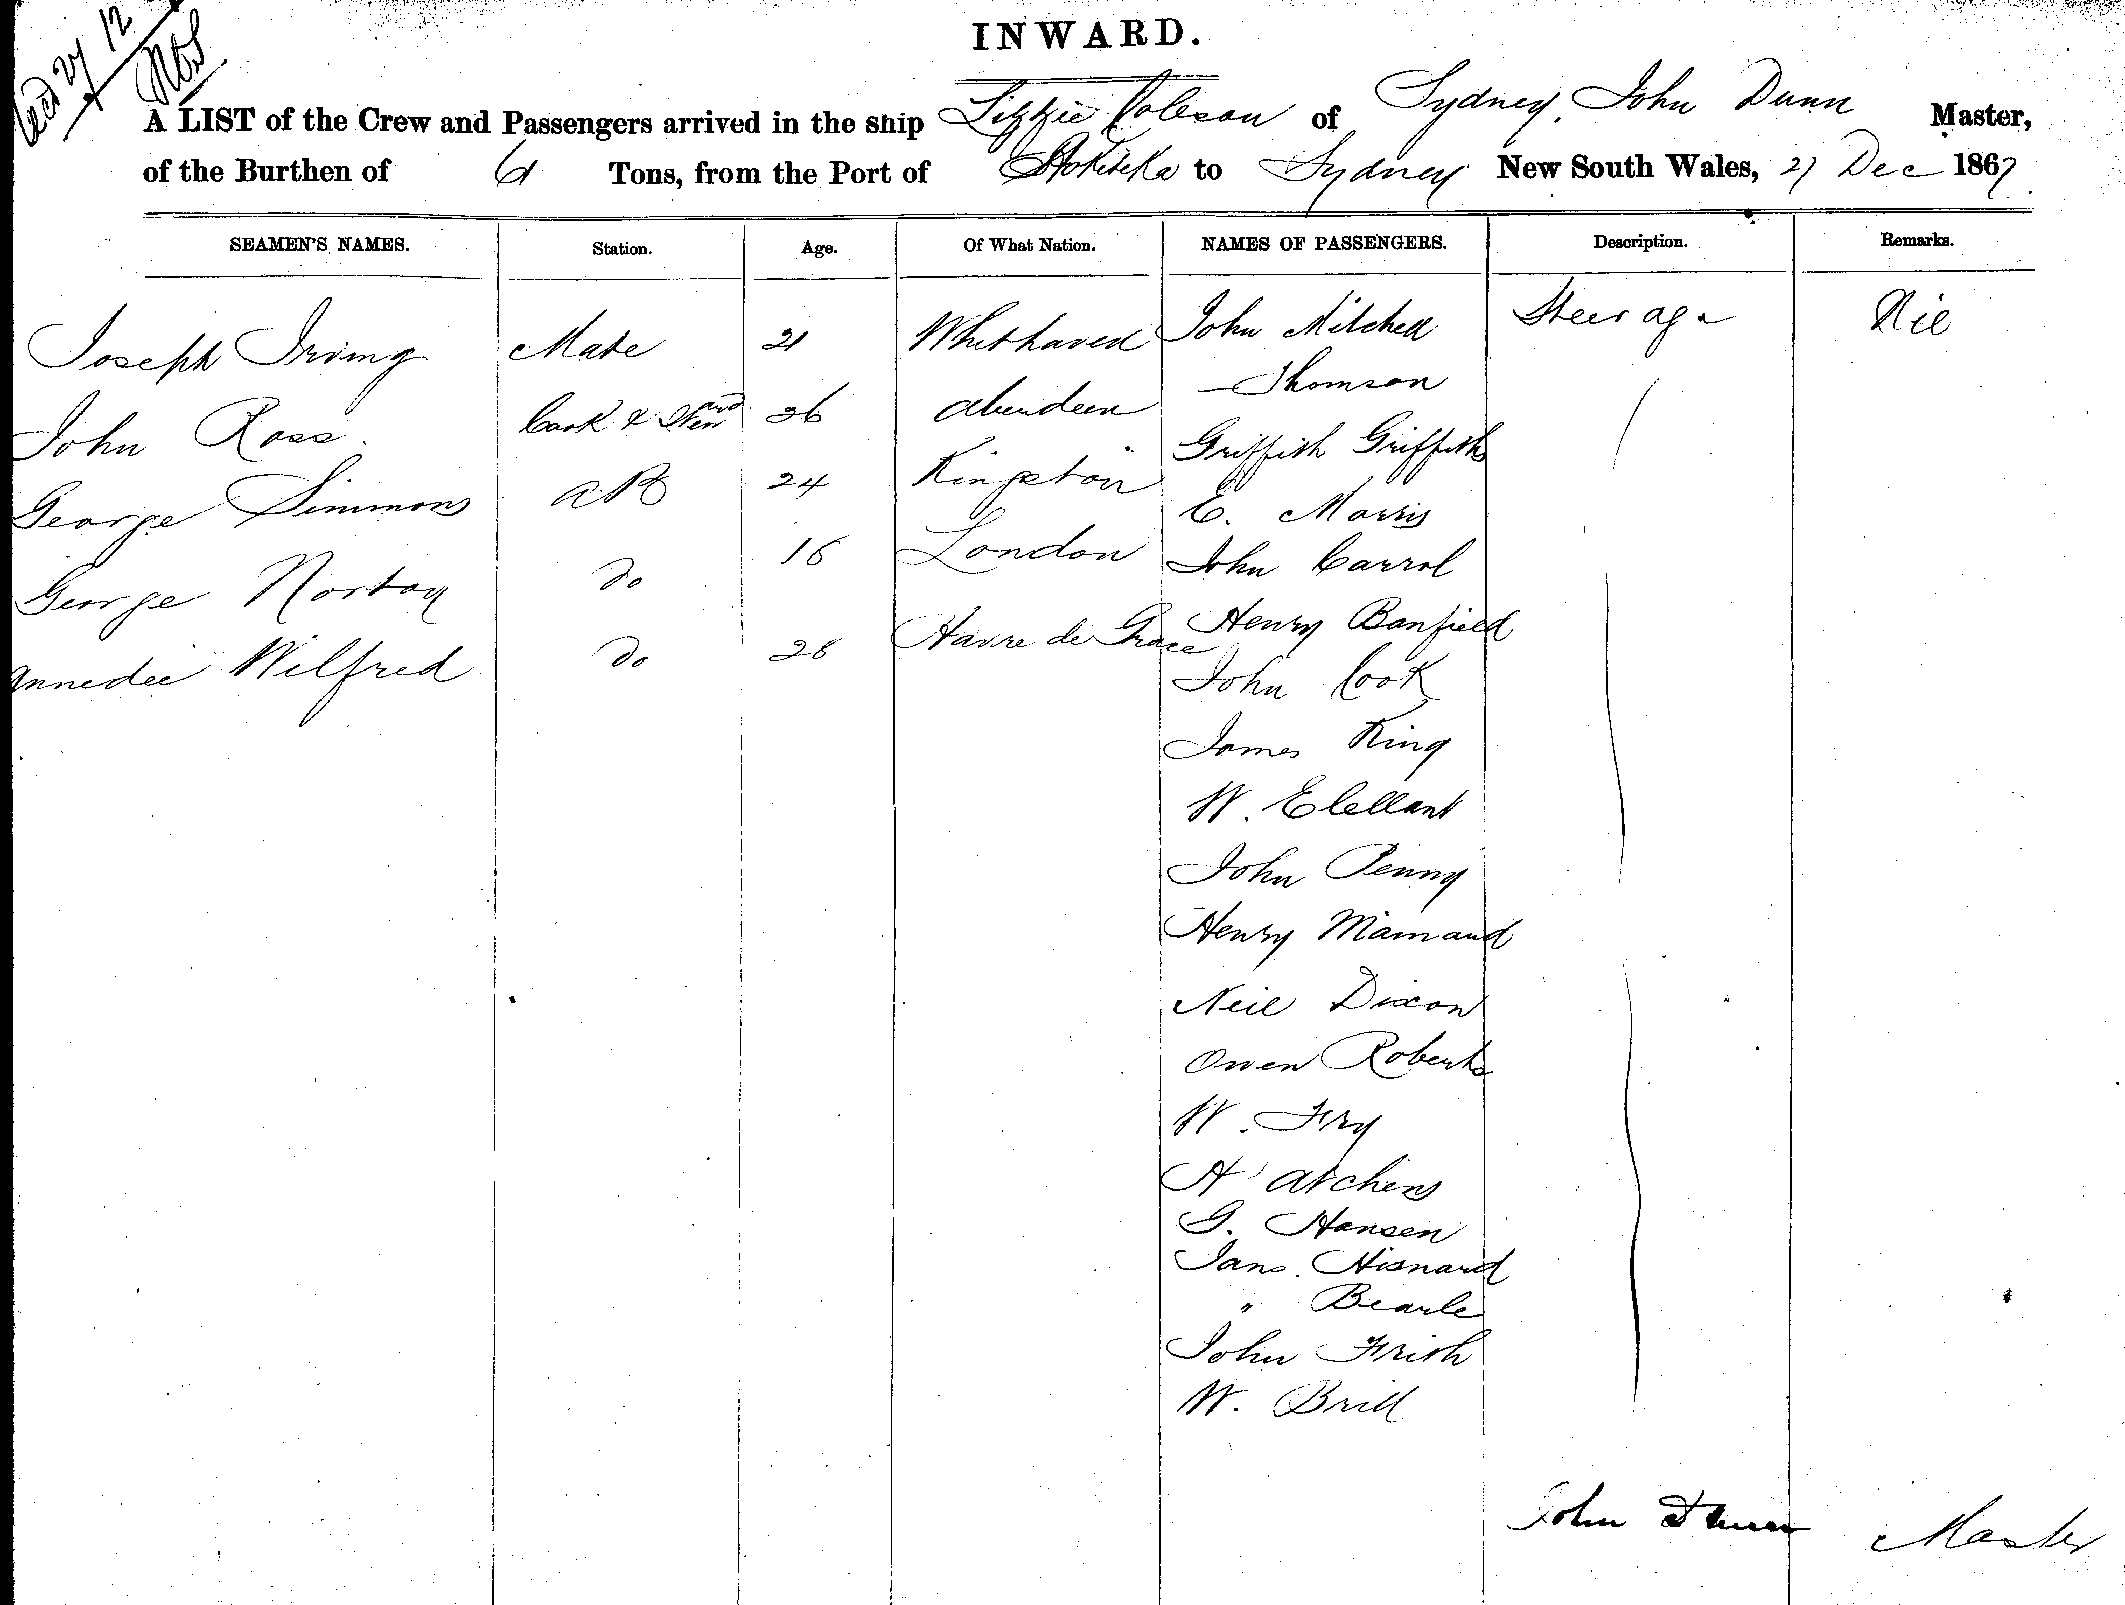 INWARD.
A LIST of the Crew and Passengers arrived in the ship Lizzie Coleson of Sydney, John Dunn Master,
of the Burthen of Tons, from the Port of Hokitika to Sydney New South Wales, 27 Dec 1867
SEAMEN'S NAMES. Station. Age. Of What Nation. NAMES OF PASSENGERS. Description. Remarks.
Joseph Irving Mate 21 Whithaven John Mitchell Steerage Nil
John Ross. Cook & Steward 26 Aberdeen — Thomson
George Simmons AB 24 Kingston Griffith Griffiths
E. Morris
George Norton do 16 London John Carrol
Annedee Wilfred do 28 Havre de Grace Henry Banfield
John Cook
James King
W.
John Penny
Henry
Neil Dixon
Owen Roberts
W. Fry
A Atchens
G. Hansen
Jans. Hisnard
" Bearle
John Frish
W. Brill
John Dunn Master